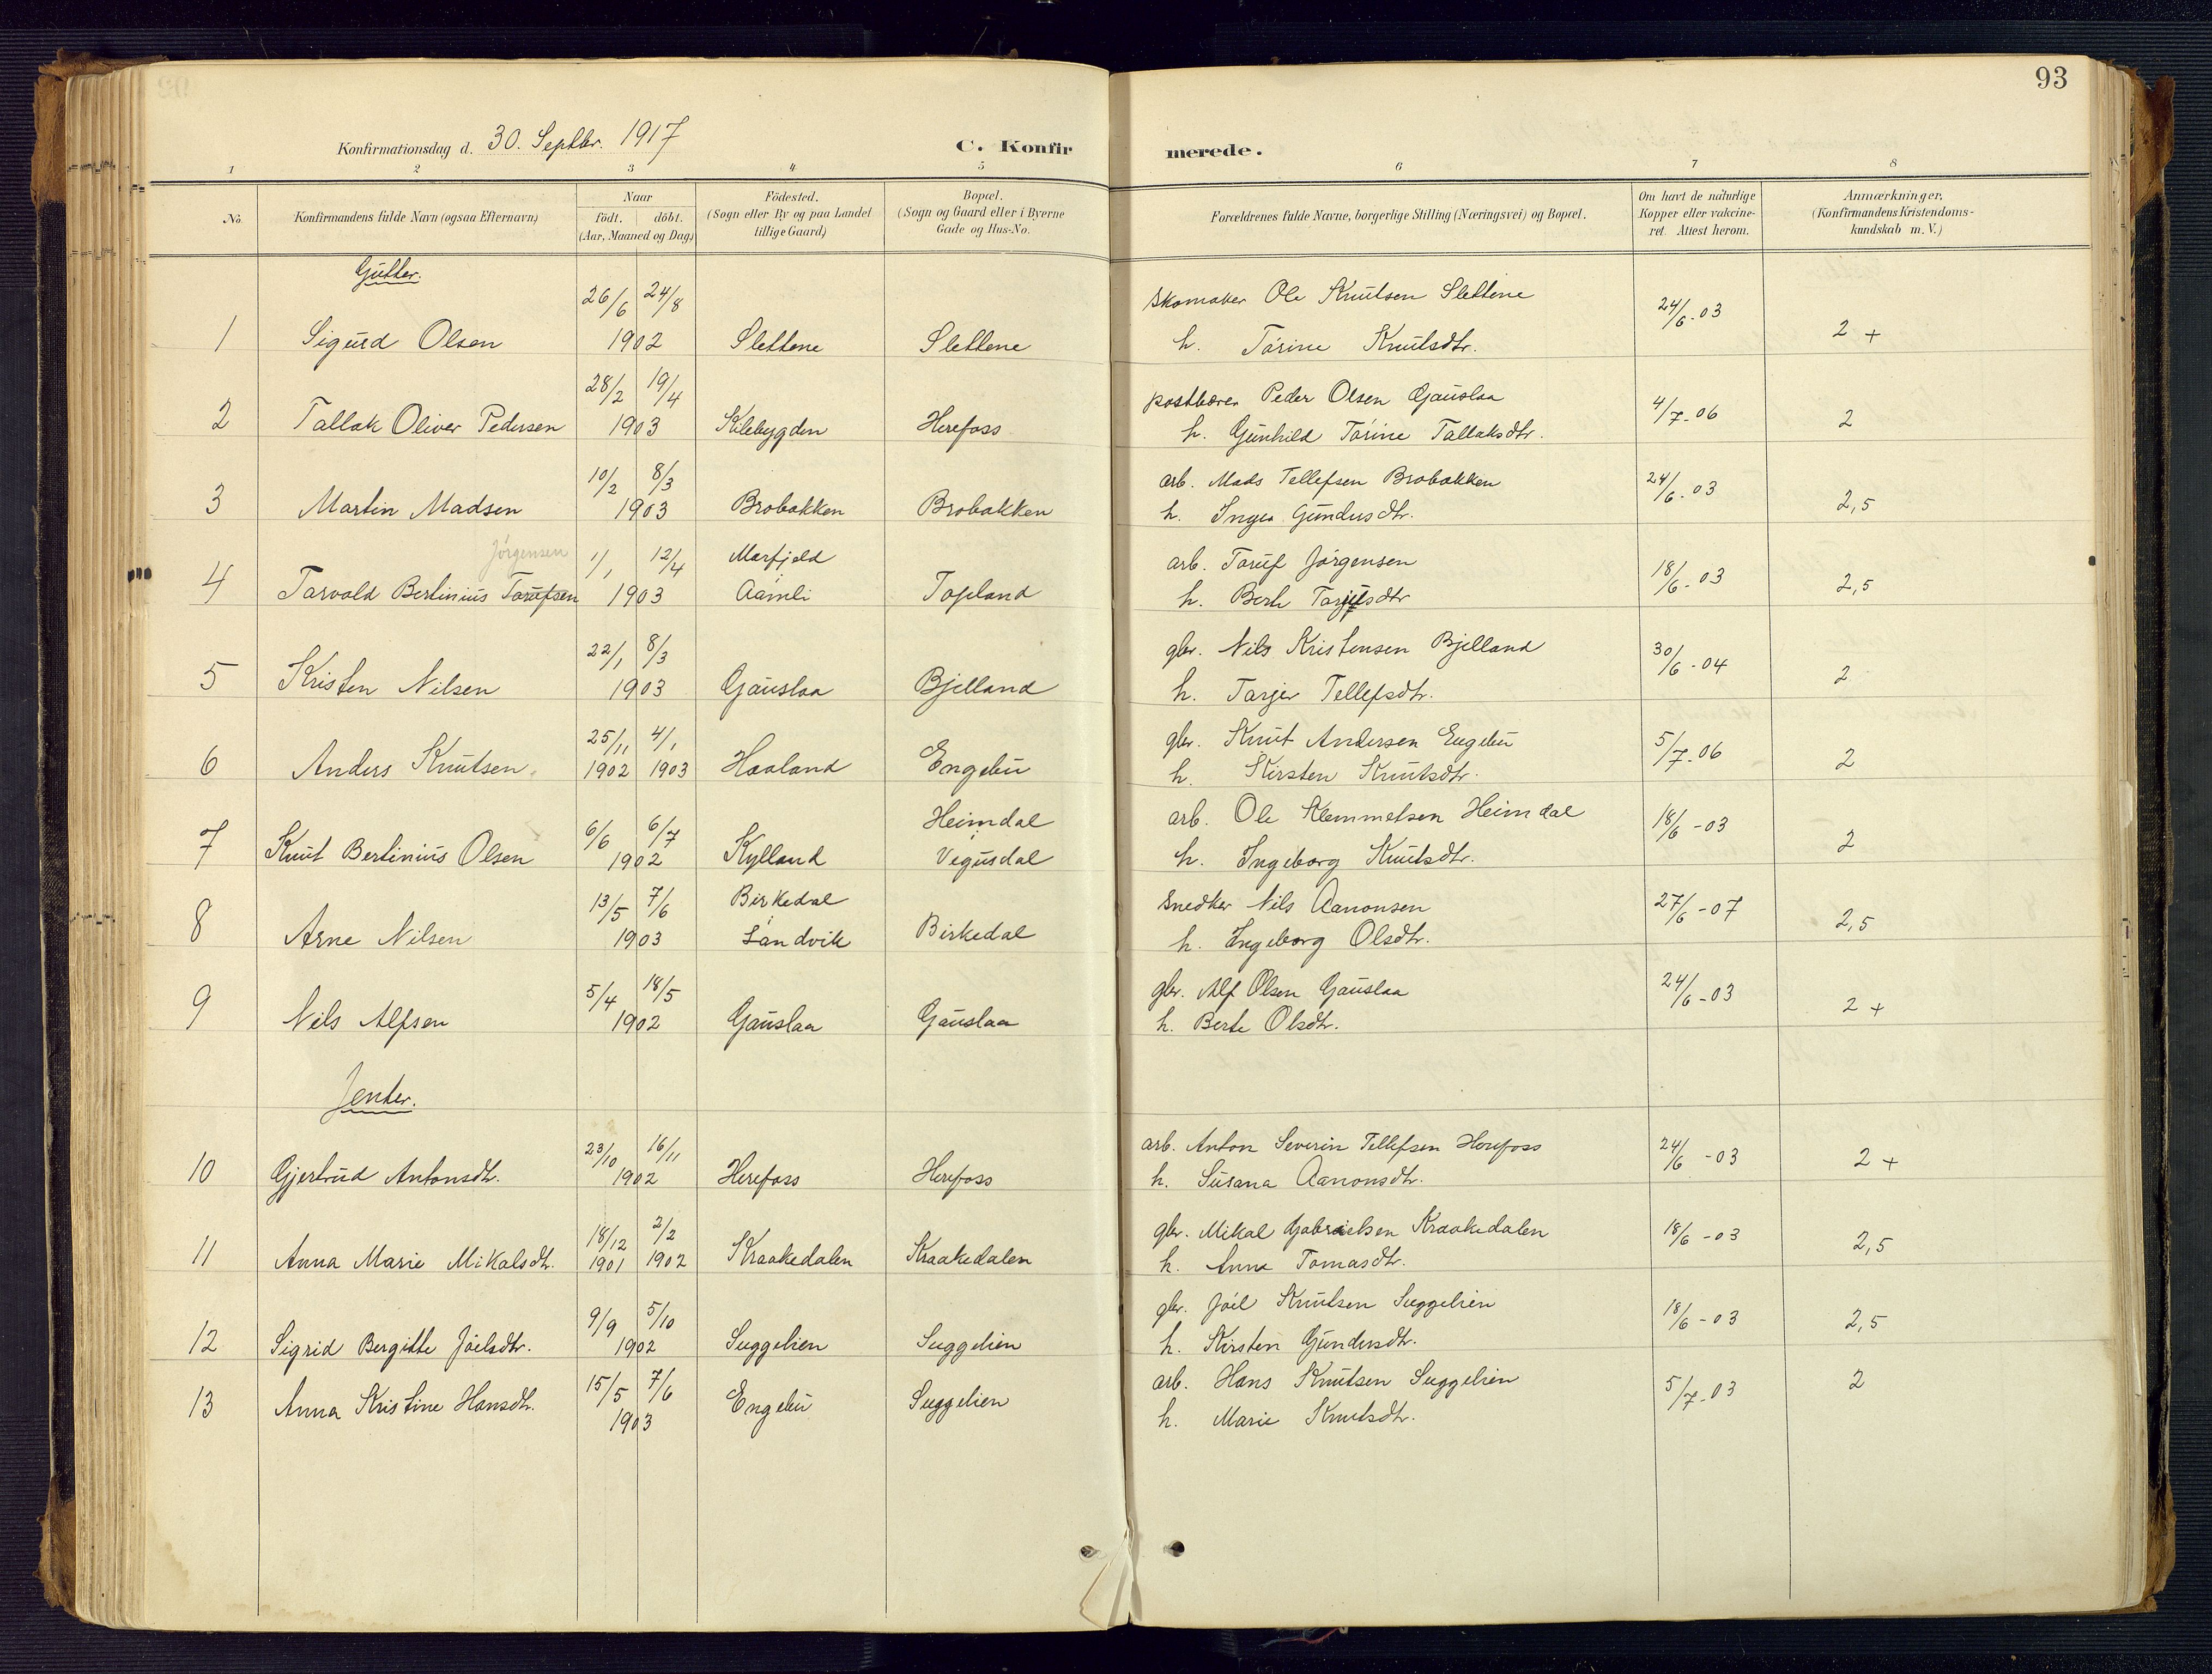 93
Konfirmationsdag d. 30. Septbr. 1917
C. Konfirmerede.
1 2 3 4 5 6 7 8
No.
Konfirmandens fulde Navn (ogsaa Efternavn)
Naar
födt. döbt.
(Aar, Maaned og Dag)
Födested.
(Sogn eller By og paa Landet
tillige Gaard)
Bopæl.
(Sogn og Gaard eller i Byerne
Gade og Hus-No.
Forældrenes fulde Navne, borgerlige Stilling (Næringsvei) og Bopæl.
Om havt de naturlige
Kopper eller vakcine-
ret. Attest herom.
Anmærkninger.
(Konfirmandens Kristendoms-
kundskab m. V.)
Gutter.
26/6 24/8 Skomaker Ole Knutsen Slettene 24/6-03
1 Sigurd Olsen 1902 Slettene Slettene h. Tørine Knutsdtr. 2 +
28/2 19/4 postbærer Peder Olsen Gauslaa 4/7-06
2 Tallak Oliver Pedersen 1903 Kilebygden Herefoss h. Gunhild Tørine Tallaksdtr. 2
10/2 8/3 arb. Mads Tellefsen Brobakken 24/6-03
3 Martin Madsen 1903 Brobakken Brobakken h. Inger Gundersdtr. 2,5
Jørgensen 1/1 12/4 Marfjeld arb. Taruf Jørgensen 18/6-03
4 Tarvald Bertinius Tarufsen 1903 Aamli Topland h. Berte Tarjufsdtr 2,5
22/1 8/3 gbr. Nils Kristensen Bjelland 30/6-04
5 Kristen Nilsen 1903 Gauslaa Bjelland h. Tarjer Tellefsdtr. 2
25/11 4/1 gbr. Knut Andersen Engebu 5/7-06
6 Anders Knutsen 1902 1903 Haaland Engebu h. Kirsten Knutsdtr. 2
6/6 6/7 Heimdal arb. Ole Klemmetsen Heimdal 18/6-03
7 Knut Bertinius Olsen 1902 Kylland Vegusdal h. Ingeborg Knutsdtr. 2
13/5 7/6 Birkedal Snedker Nils Aanonsen 27/6-07
8 Arne Nilsen 1903 Landvik Birkedal h. Ingeborg Olsdtr. 2,5
5/4 18/5 gbr. Alf Olsen Gauslaa 24/6-03
9 Nils Alfsen 1902 Gauslaa Gauslaa h. Berte Olsdtr. 2 +
Jenter.
23/10 16/11 arb. Anton Severin Tellefsen Herefoss 24/6-03
10 Gjertrud Antonsdtr. 1902 Herefoss Herefoss h. Susana Aanonsdtr. 2 +
18/12 2/2 gbr. Mikal Gabrielsen Kraakedalen 18/6-03
11 Anna Marie Mikalsdtr. 1901 1902 Kraakedalen Kraakedalen h. Anne Tomasdtr. 2,5
9/9 5/10 gbr. Joel Knutsen Suggelien 18/6-03
12 Sigrid Bergitte Joelsdtr. 1902 Suggelien Suggelien h. Kirsten Gundersdtr. 2,5
15/5 7/6 arb. Hans Knutsen Suggelien 5/7-03 2
13 Anna Kristine Hansdtr. 1903 Engebu Suggelien h. Marie Knutsdtr.